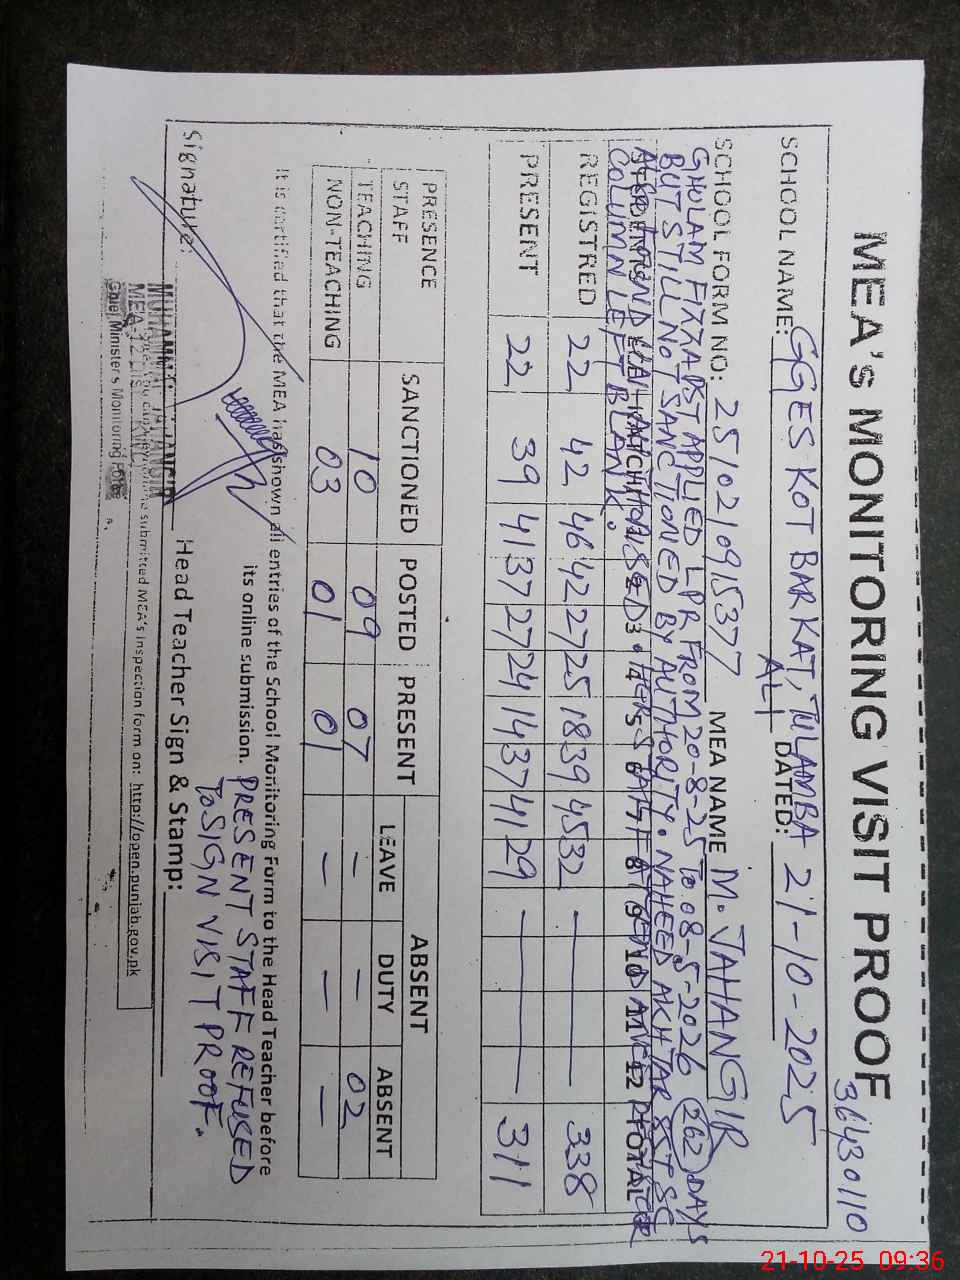 MEA's MONITORING VISIT PROOF
36430110
SCHOOL NAME: GGES KOT BARKAT ALI, TULAMBA DATED: 21-10-2025
SCHOOL FORM NO: 2510210915377 MEA NAME M. JAHANGIR
GHULAM FIZZA PST APPLIED LPR FROM 20-8-25 To 08-5-2026 (262) DAYS
BUT STILL NOT SANCTIONED BY AUTHORITY. NAHEED AKHTAR SST SC
COLUMN LEFT BLANK.
REGISTRED 22 42 46 42 27 25 18 39 45 32 — — 338
PRESENT 22 39 41 37 27 24 14 37 41 29 — — 311
PRESENCE ABSENT
STAFF SANCTIONED POSTED PRESENT LEAVE DUTY ABSENT
TEACHING 10 09 07 — — 02
NON-TEACHING 03 01 01 — — —
It is certified that the MEA has shown all entries of the School Monitoring Form to the Head Teacher before
its online submission. PRESENT STAFF REFUSED
To SIGN VISIT PROOF.
Signature: Head Teacher Sign & Stamp:
MUHAMMAD JAHANGIR
submitted MEA's Inspection form on: http://open.punjab.gov.pk
Chief Minister's Monitoring Force
21-10-25 09:36